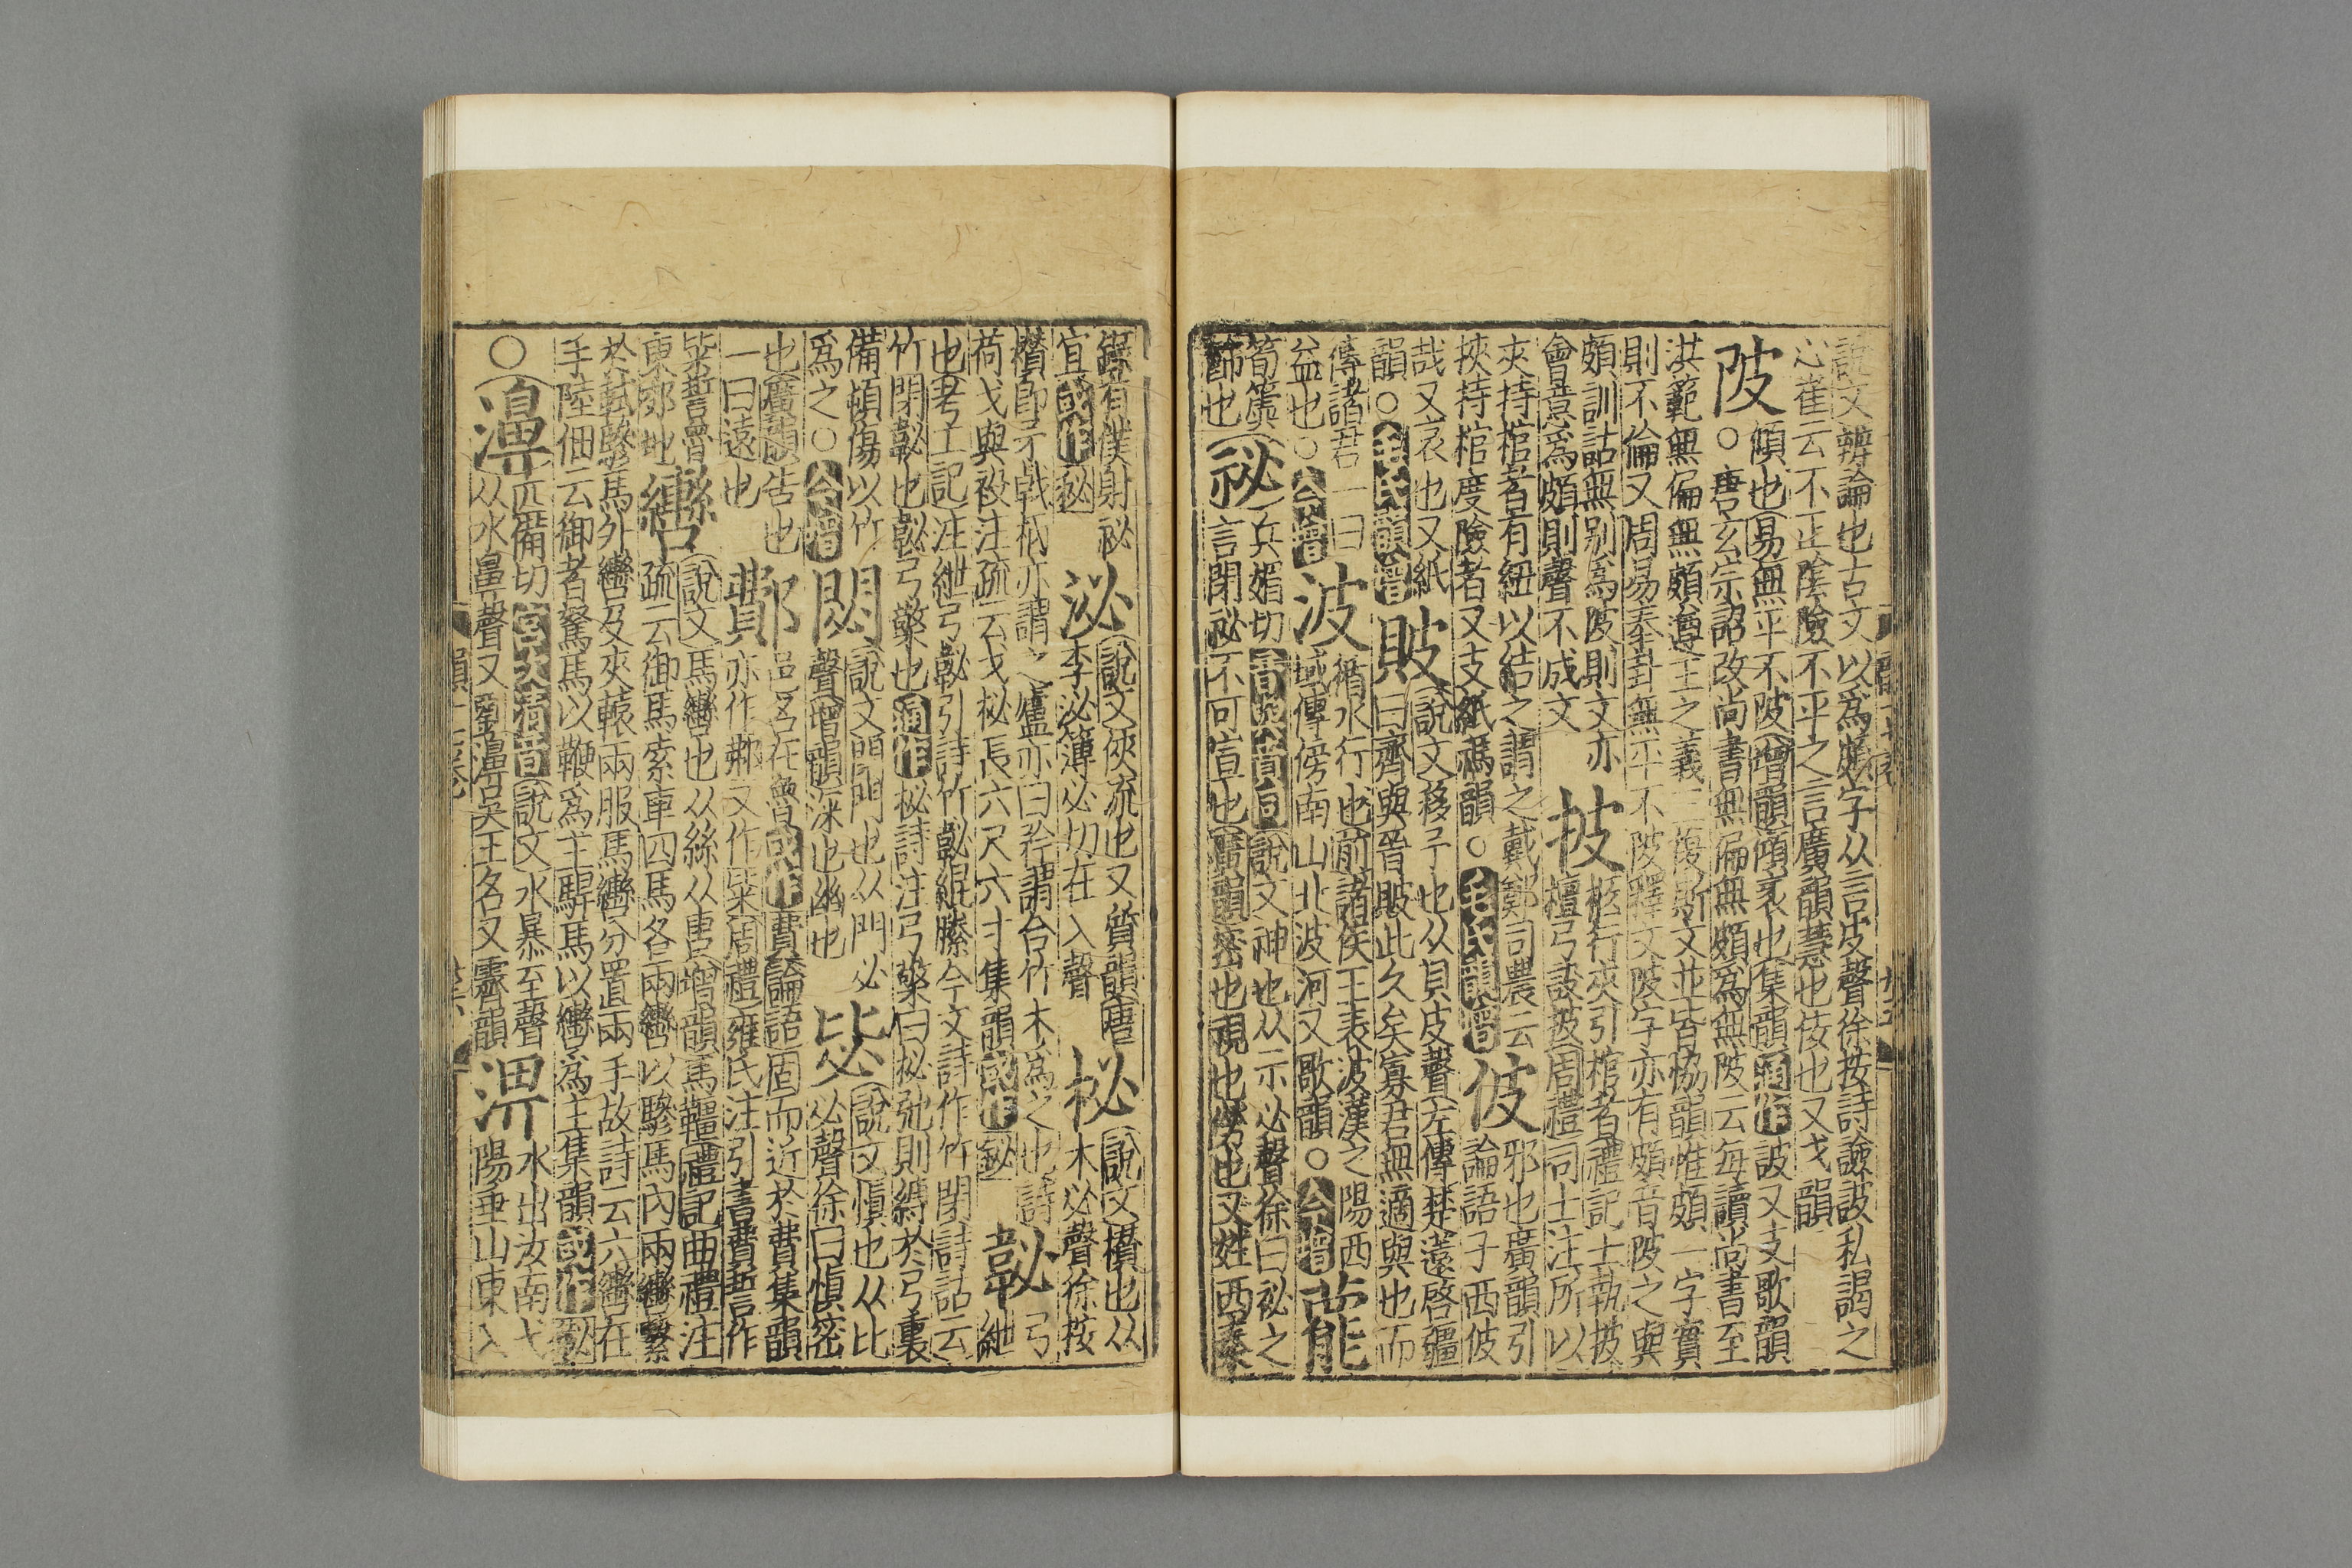 說文辨論也古文以爲頗字从言皮聲徐按詩譣詖私謁之
心崔云不正陰險不平之言廣韻慧也佞也又戈韻
陂
傾也易無平不陂增韻傾衺也集韻通作詖又支歌韻
○唐玄宗詔改尚書無偏無頗爲無陂云每讀尚書至
洪範無偏無頗遵王之義三復斯文並皆協韻惟頗一字實
則不倫又周易泰卦無平不陂釋文陂字亦有頗音陂之與
頗訓詁無别爲陂則文亦
會意爲頗則聲不成文
披
柩行夾引棺者禮記士執披
檀弓設披周禮司士注所以
夾持棺者有紐以結之謂之戴鄭司農云
挾持棺度險者又支紙禡韻○毛氏韻增
佊
邪也廣韻引
論語子西佊
哉又哀也又紙
韻○毛氏韻增
貱
說文移予也从貝皮聲左傳楚薳啓疆
曰齊與晉貱此久矣寡君無適與也而
傳諸君一曰
益也○今增
波
循水行也前諸侯王表波漢之陽西
域傳傍南山北波河又歌韻○今增
䕯
筍簴
飾也
祕
兵媚切音與賁同說文神也从示必聲徐曰祕之
言閉祕不可宣也廣韻密也視也勞也又姓西秦
錄有僕射祕
宜或作秘
泌
說文俠流也又質韻唐
李泌簿必切在入聲
柲
說文欑也从
木必聲徐按
欑卽矛戟柄亦謂之廬亦曰矜謂合竹木爲之也詩
荷戈與祋注疏云戈柲長六尺六寸集韻或作䤉
䪐
弓
紲
也考工記注紲弓䪐引詩竹䪐緄縢今文詩作竹閉詩詁云
竹閉䪐也䪐弓檠也通作柲詩注弓檠曰柲弛則縛於弓裏
備頓傷以竹
爲之○今增
閟
說文閉門也从門必
聲增韻深也幽也
毖
說文愼也从比
必聲徐曰愼密
也廣韻告也
一曰遠也
鄪
邑名在魯或作費論語固而近於費集韻
亦作䣥又作粊周禮雍氏注引書費誓作
粊誓魯
東郊地
轡
說文馬轡也从絲从軎增韻馬韁禮記曲禮注
疏云御馬索車四馬各兩轡以驂馬內兩轡繫
於軾驂馬外轡及夾轅兩服馬轡分置兩手故詩云六轡在
手陸佃云御者駑馬以鞭爲主駻馬以轡爲主集韻或作
○
濞
匹備切宫次清音說文水暴至聲
从水鼻聲又劉濞吳王名又霽韻
淠
水出汝南弋
陽垂山東入